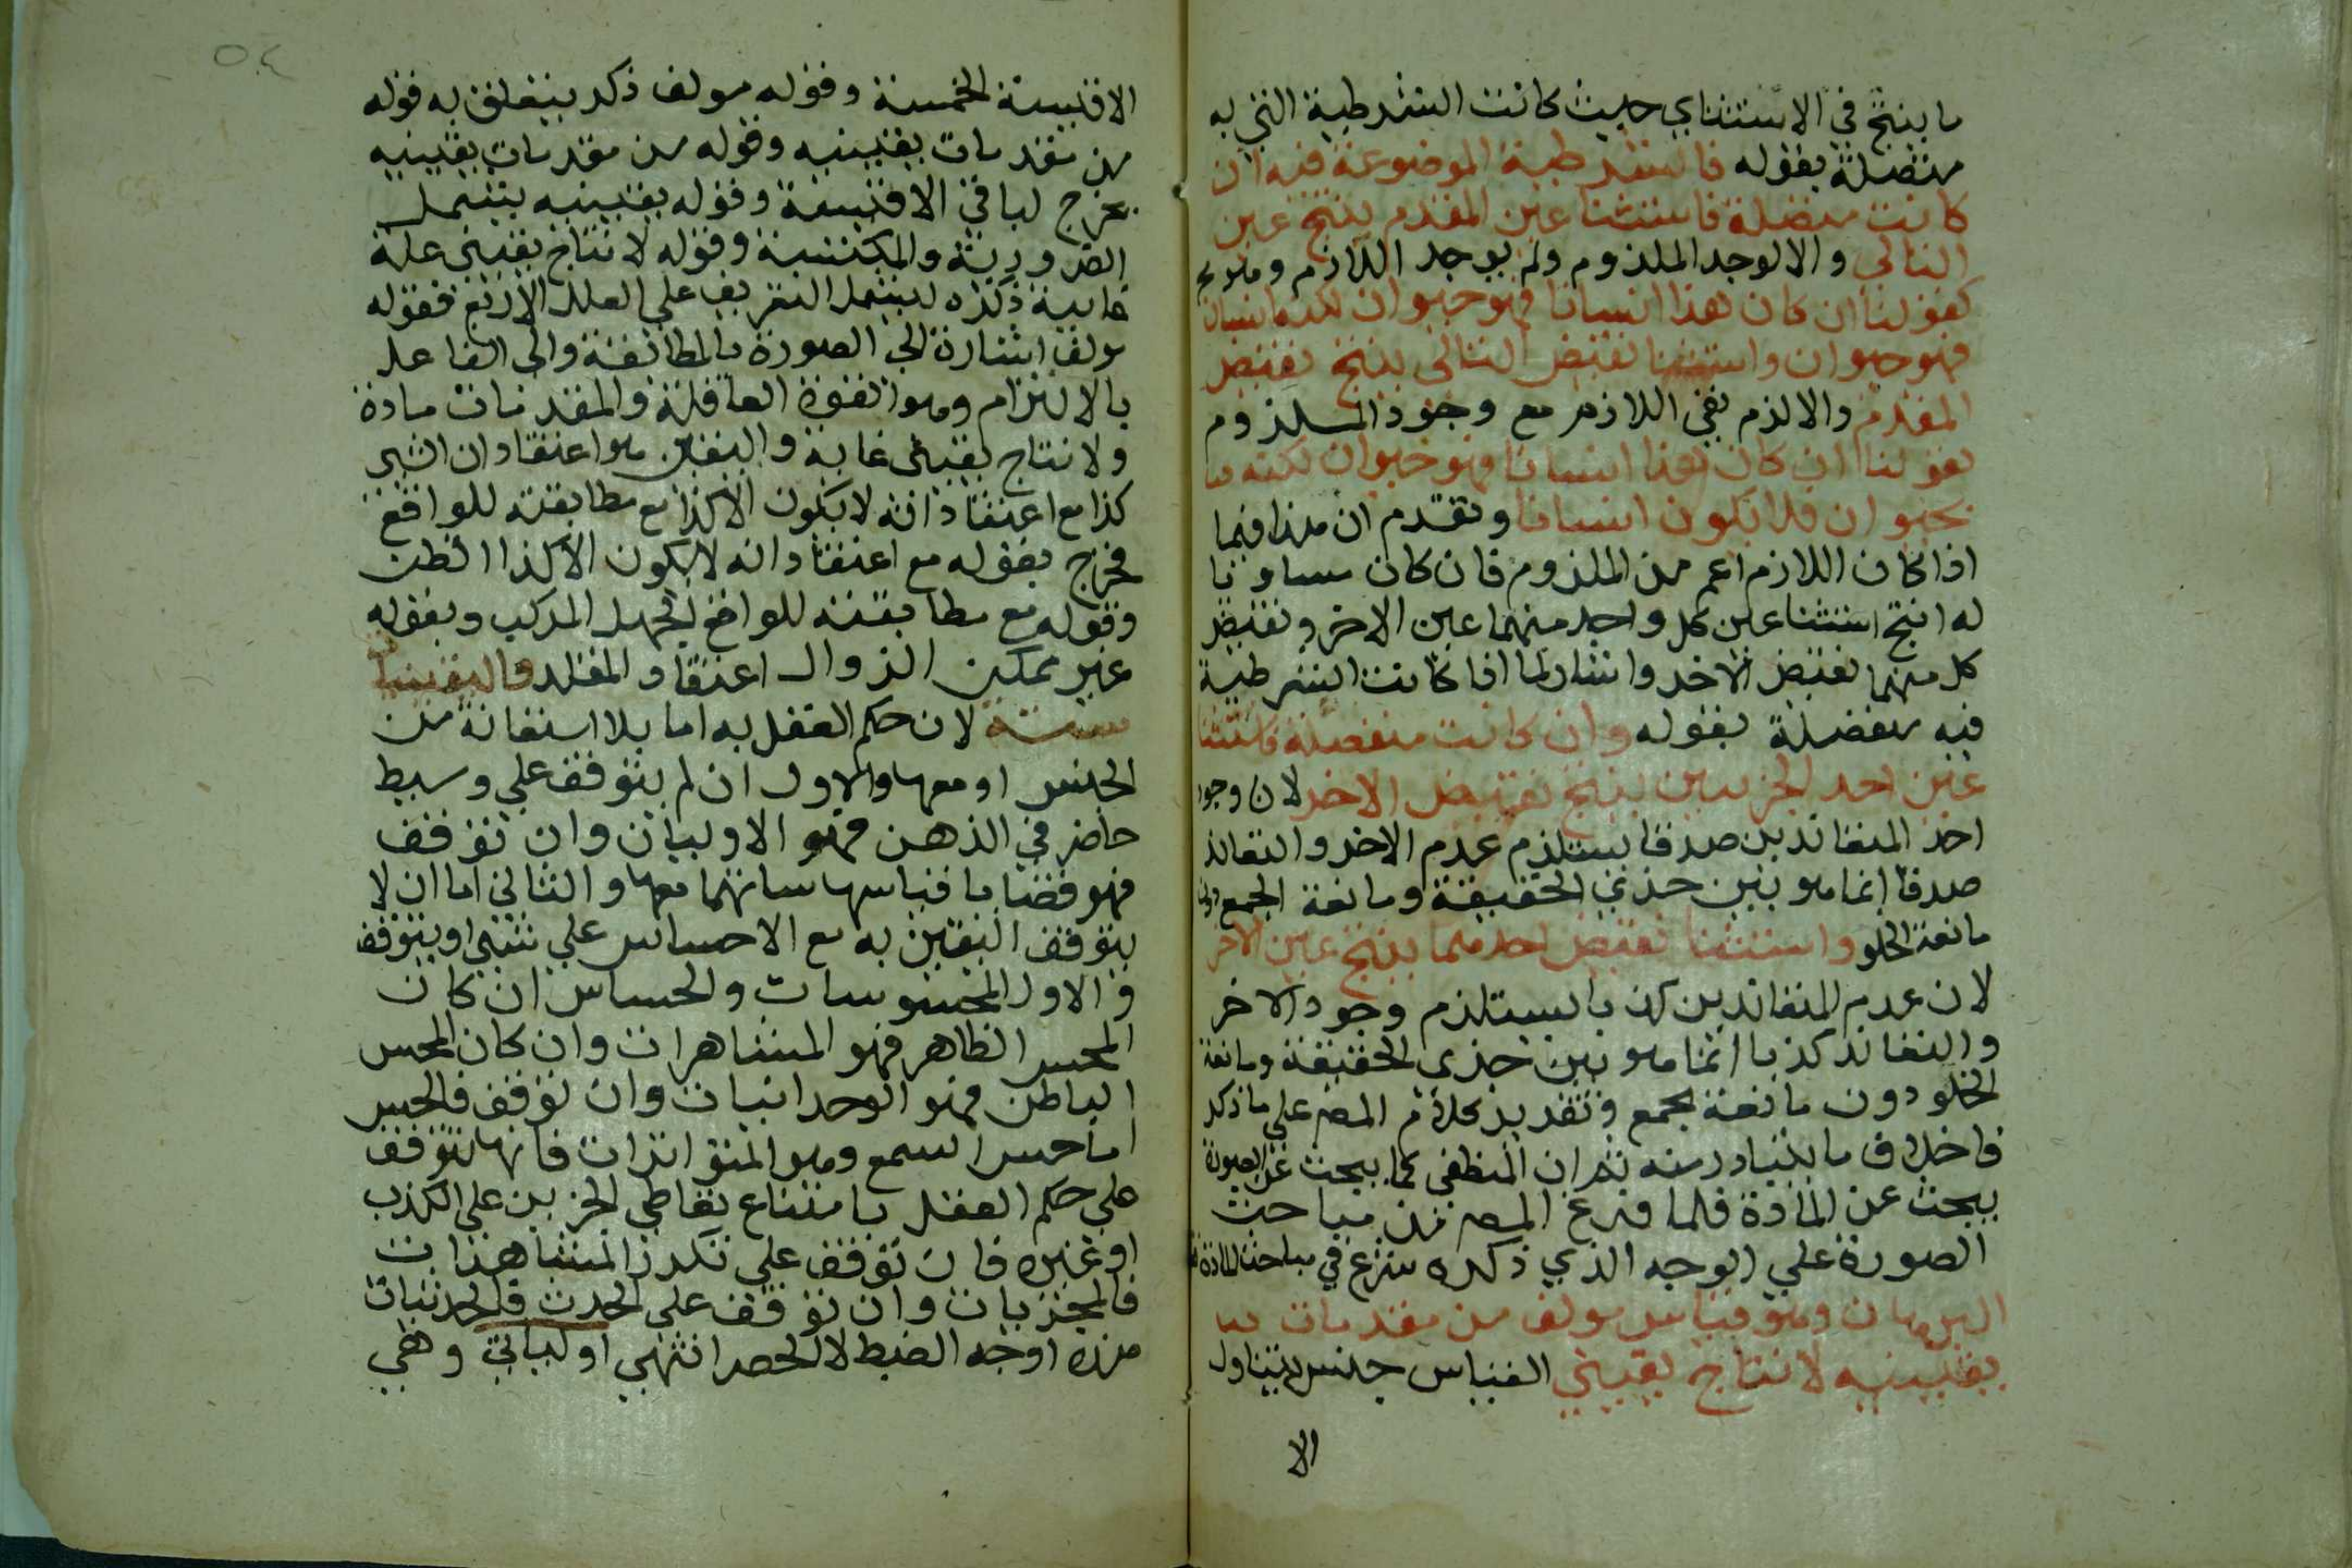 ما ينتج في الاستثناي حيث كانت الشرطية التي به
متصلة بقوله فالشرطية الموضوعة فيه ان
كانت متصلة فاستثنا عين المقدم ينتج عين
التالي والا لوجد الملزوم ولم يوجد اللازم وهو مح
كقولنا ان كان هذا انسانا فهو حيوان لكنه انسان
فهو حيوان واستثنا نقيض التالي ينتج نقيض
المقدم والا لزم نفي اللازم مع وجود الملزوم
كقولنا ان كان هذا انسانا فهو حيوان لكنه ليس
بحيوان فلا يكون انسانا وتقدم ان هذا فيما
اذا كان اللازم اعم من الملزوم فان كان مساويا
له انتج استثنا عين كل واحد منهما عين الاخر ونقيض
كل منهما نقيض الاخر واشار لما اذا كانت الشرطية
فيه منفصلة بقوله وان كانت منفصلة فاستثنا
عين احد الجزيين ينتج نقيض الاخر لان وجود
احد المتعاندين صدقا يستلزم عدم الاخر والتعاند
صدقا انما هو بين جزئي الحقيقة ومانعة الجمع دون
مانعة الخلو واستثنا نقيض احدهما ينتج عين الاخر
لان عدم المتعاندين كذبا يستلزم وجود الاخر
والتعاند كذبا انما هو بين جزئي الحقيقة ومانعة
الخلو دون مانعة الجمع وتقدير كلام المص على ما ذكر
فاخلاف ما يتبادر منه ثم ان المنطقي كما يبحث عن الصورة
يبحث عن المادة فلما فرغ المص من مباحث
الصورة علي الوجه الذي ذكره شرع في مباحث المادة
البرهان وهو قياس مولف من مقدمات
يقينيه لانتاج يقيني القياس جنس يتناول
الا
الاقيسة الخمسة وقوله مولف ذكر ليتعلق به قوله
من مقدمات يقينيه وقوله من مقدمات يقينيه
مخرج لباقي الاقيسة وقوله يقينيه يشمل
الضرورية والمكتسبة وقوله لانتاج يقيني علة
غايية ذكره ليشمل التعريف على العلل الاربع فقوله
مولف اشارة الى الصورة بالمطابقة والى الفاعل
بالالتزام وهو القوة العاقلة والمقدمات مادة
ولانتاج يقيني غاية واليقين هو اعتقاد ان الشي
كذا مع اعتقاد انه لا يكون الا كذا مع مطابقته للواقع
فخرج بقوله مع اعتقاد انه لا يكون الا كذا الظن
وقوله مع مطابقته للواقع الجهل المركب وبقوله
غير ممكن الزوال اعتقاد المقلد واليقينيات
ستة لان حكم العقل به اما بلا استعانة من
الحس او معها والاول ان لم يتوقف علي وسيط
حاضر في الذهن فهو الاوليات وان توقف
فهو قضايا قياسها تها معها والثاني اما ان لا
يتوقف اليقين به مع الاحساس علي شي او يتوقف
والاول المحسوسات والحساس ان كان
الحس الظاهر فهو المشاهرات وان كان الحس
الباطن فهو الوحدانيات وان توقف فالحس
اما حس السمع وهو المتواترات فانها تتوقف
علي حكم العقل بامتناع تواطي المخبرين على الكذب
او غيره فان توقف علي تكرر المشاهدات
فالمجربات وان توقف على الحدث فالحدثيات
هذه اوجه الضبط لا الحصر انتهي اولياتي وهي